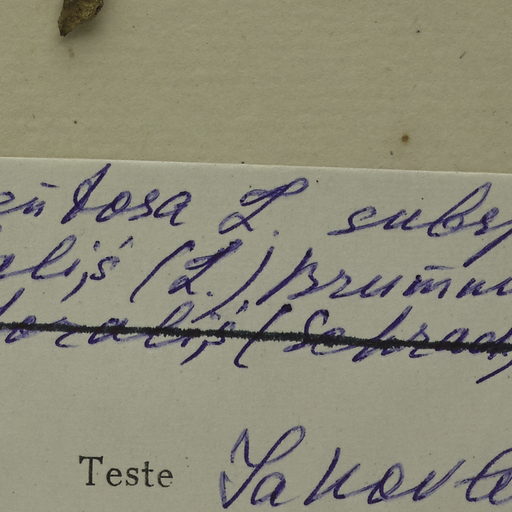 entosa L. subsp
alis (L.) Brumm
toralis (Schrad
Teste Jakovle